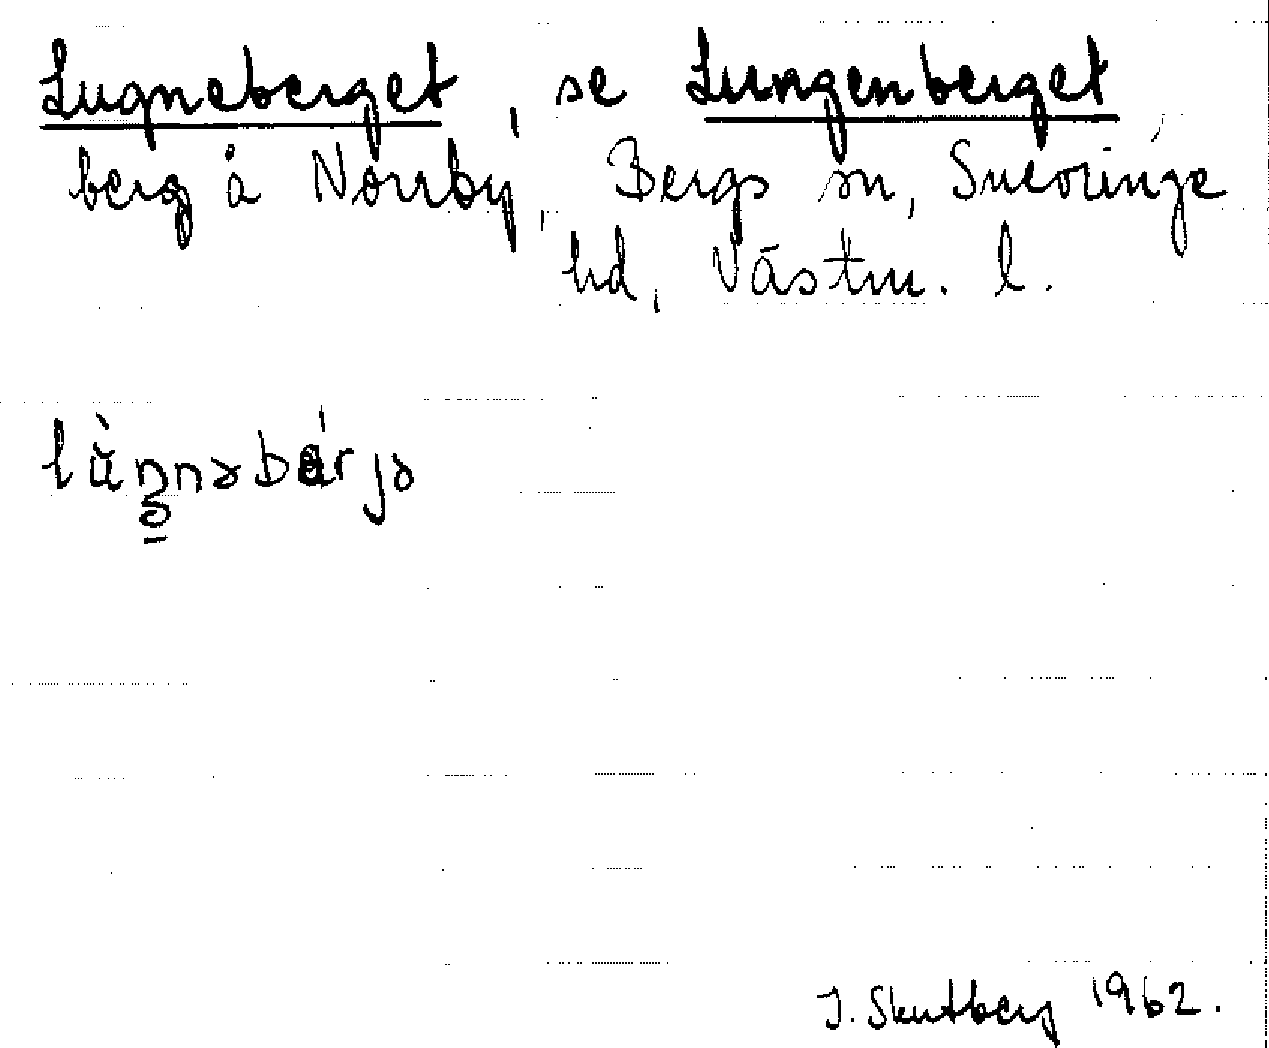 Lugneberget, se Lungenberget,
berg å Norrby, Bergs sn, Snevringe
hd, Västm. l.
I. Skutberg 1962.